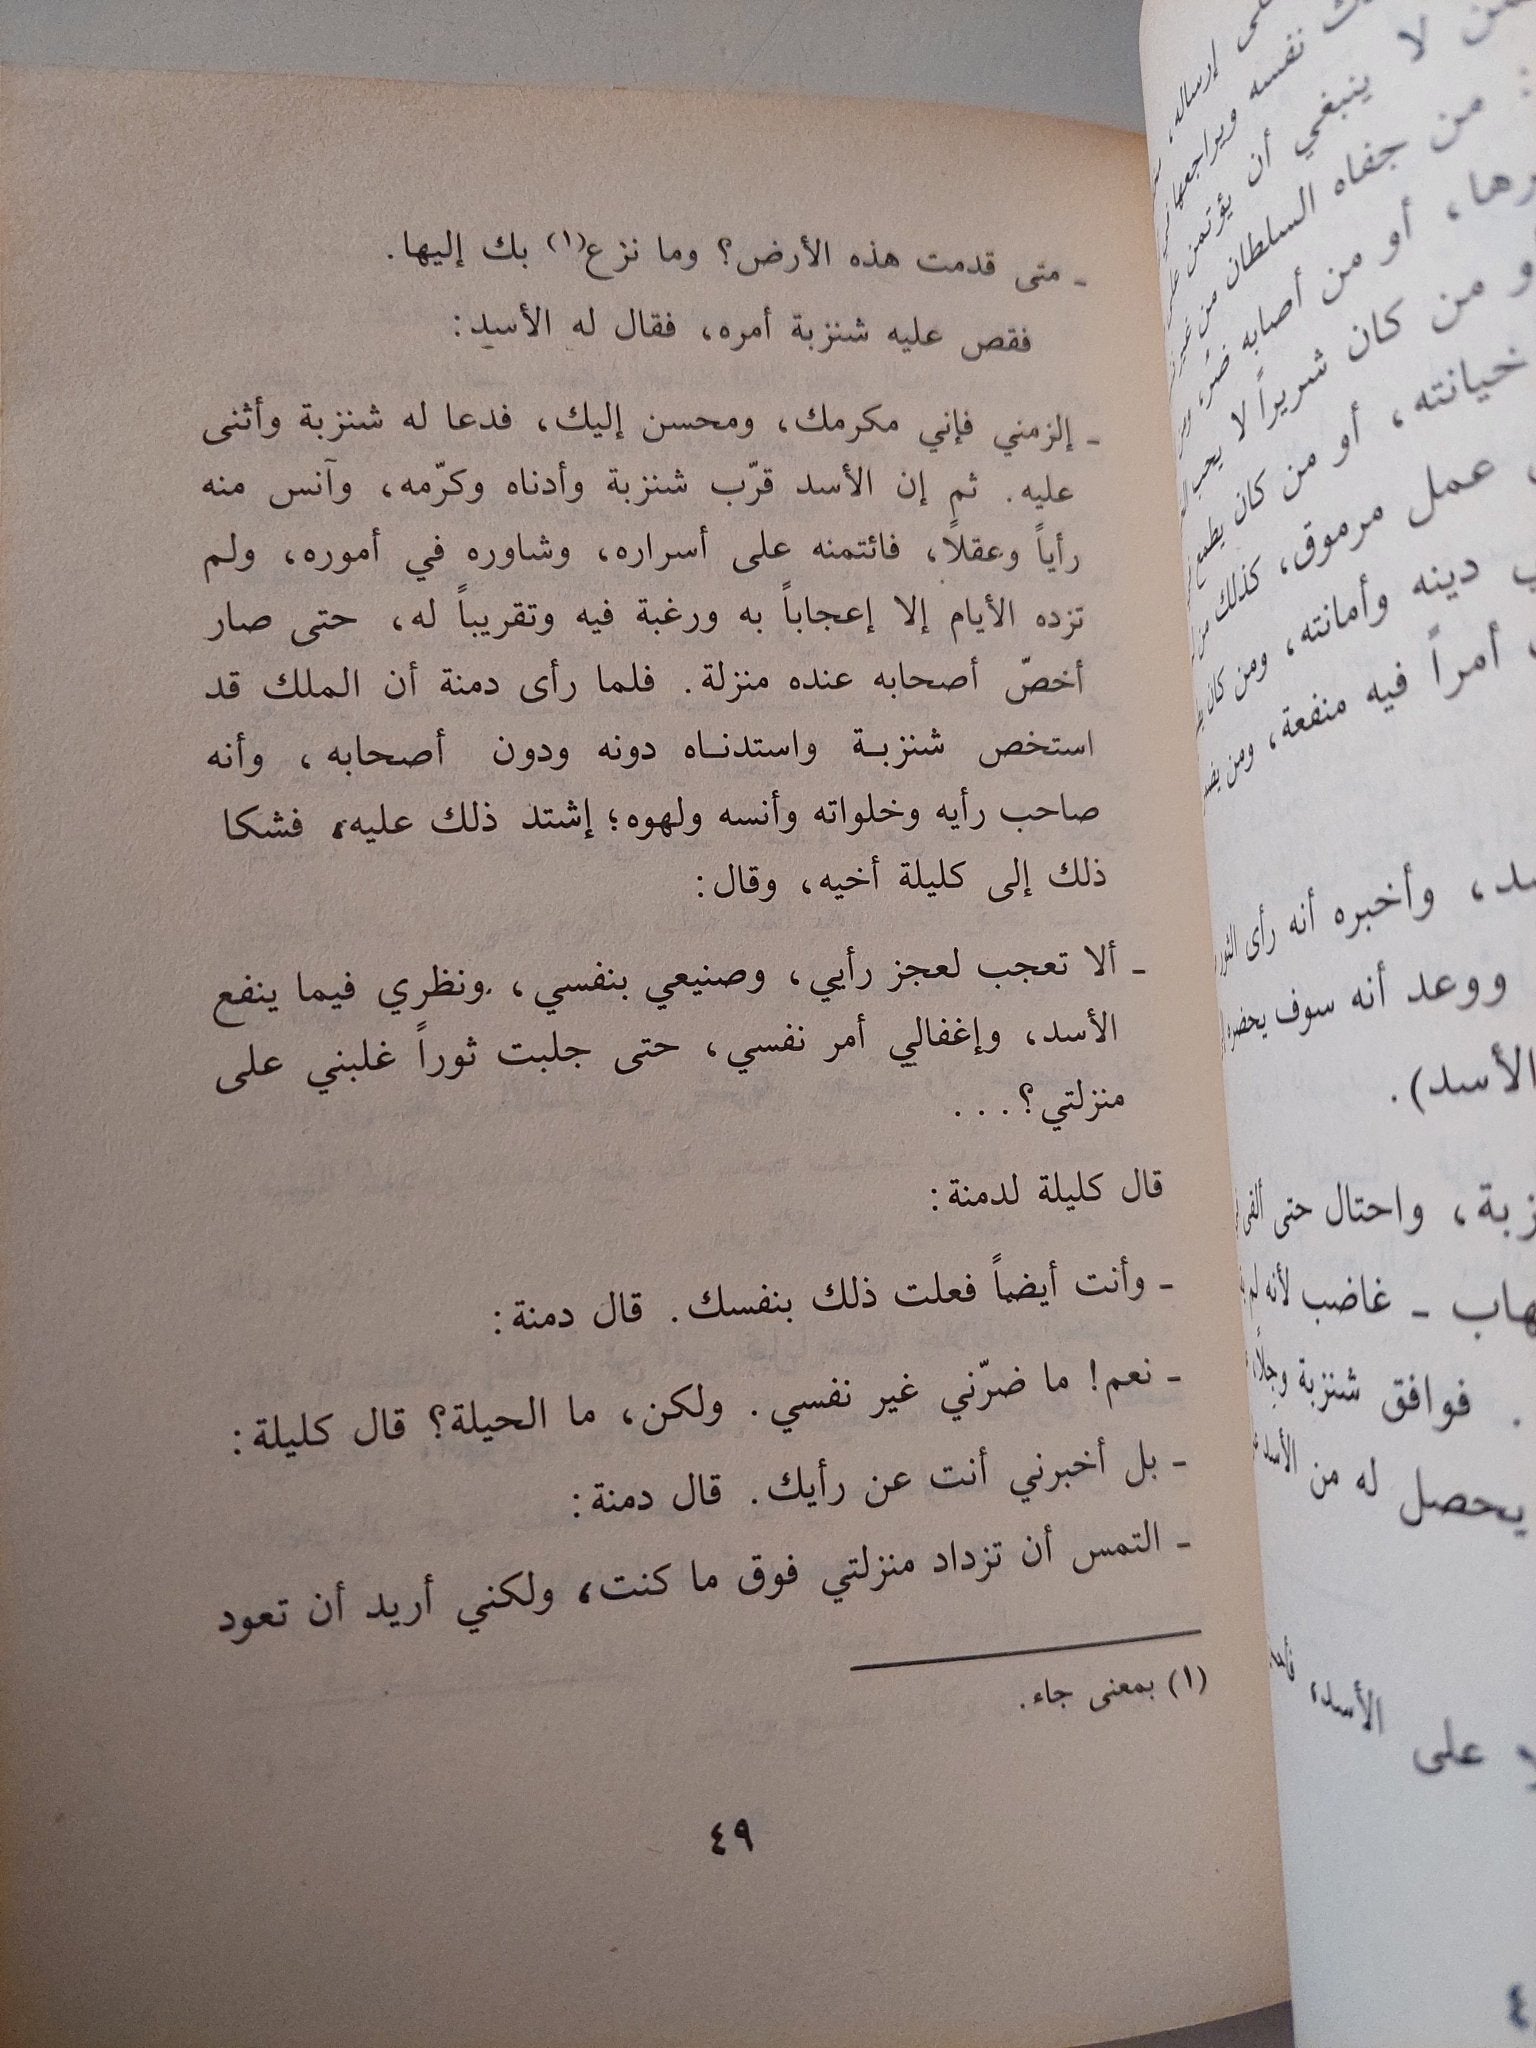 ـ متى قدمت هذه الأرض؟ وما نزع(١) بك إليها.
فقص عليه شنزبة أمره، فقال له الأسد:
ـ إلزمني فإني مكرمك، ومحسن إليك، فدعا له شنزبة وأثنى
عليه. ثم إن الأسد قرّب شنزبة وأدناه وكرّمه، وآنس منه
رأياً وعقلاً، فائتمنه على أسراره، وشاوره في أموره، ولم
تزده الأيام إلا إعجاباً به ورغبة فيه وتقريباً له، حتى صار
أخصّ أصحابه عنده منزلة. فلما رأى دمنة أن الملك قد
استخص شنزبة واستدناه دونه ودون أصحابه، وأنه
صاحب رأيه وخلواته وأنسه ولهوه؛ إشتد ذلك عليه، فشكا
ذلك إلى كليلة أخيه، وقال:
ـ ألا تعجب لعجز رأيي، وصنيعي بنفسي، ونظري فيما ينفع
الأسد، وإغفالي أمر نفسي، حتى جلبت ثوراً غلبني على
منزلتي؟...
قال كليلة لدمنة:
ـ وأنت أيضاً فعلت ذلك بنفسك. قال دمنة:
ـ نعم! ما ضرّني غير نفسي. ولكن، ما الحيلة؟ قال كليلة:
ـ بل أخبرني أنت عن رأيك. قال دمنة:
ـ التمس أن تزداد منزلتي فوق ما كنت، ولكني أريد أن تعود
(١) بمعنى جاء.
٤٩
إرساله،
نفسه ويراجعها
لا ينبغي أن يؤتمن
: من جفاه السلطان من
، أو من أصابه ضرّ،
من كان شريراً لا يحب
خيانته، أو من كان يطمع
عمل مرموق، كذلك من
دينه وأمانته، ومن كان
أمراً فيه منفعة، ومن
، وأخبره أنه رأى الثور
ووعد أنه سوف يحضره
الأسد).
، واحتال حتى ألفى
ـ غاضب لأنه لم
. فوافق شنزبة وجلاً،
يحصل له من الأسد
على الأسد،